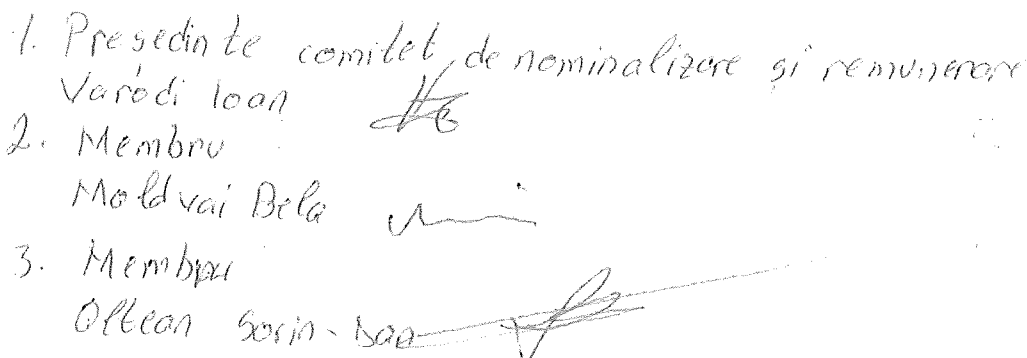 1. Președinte comitet de nominalizare și remunerare
Varódi Ioan
2. Membru
Moldvai Bela
3. Membru
Oltean Sorin-Dan